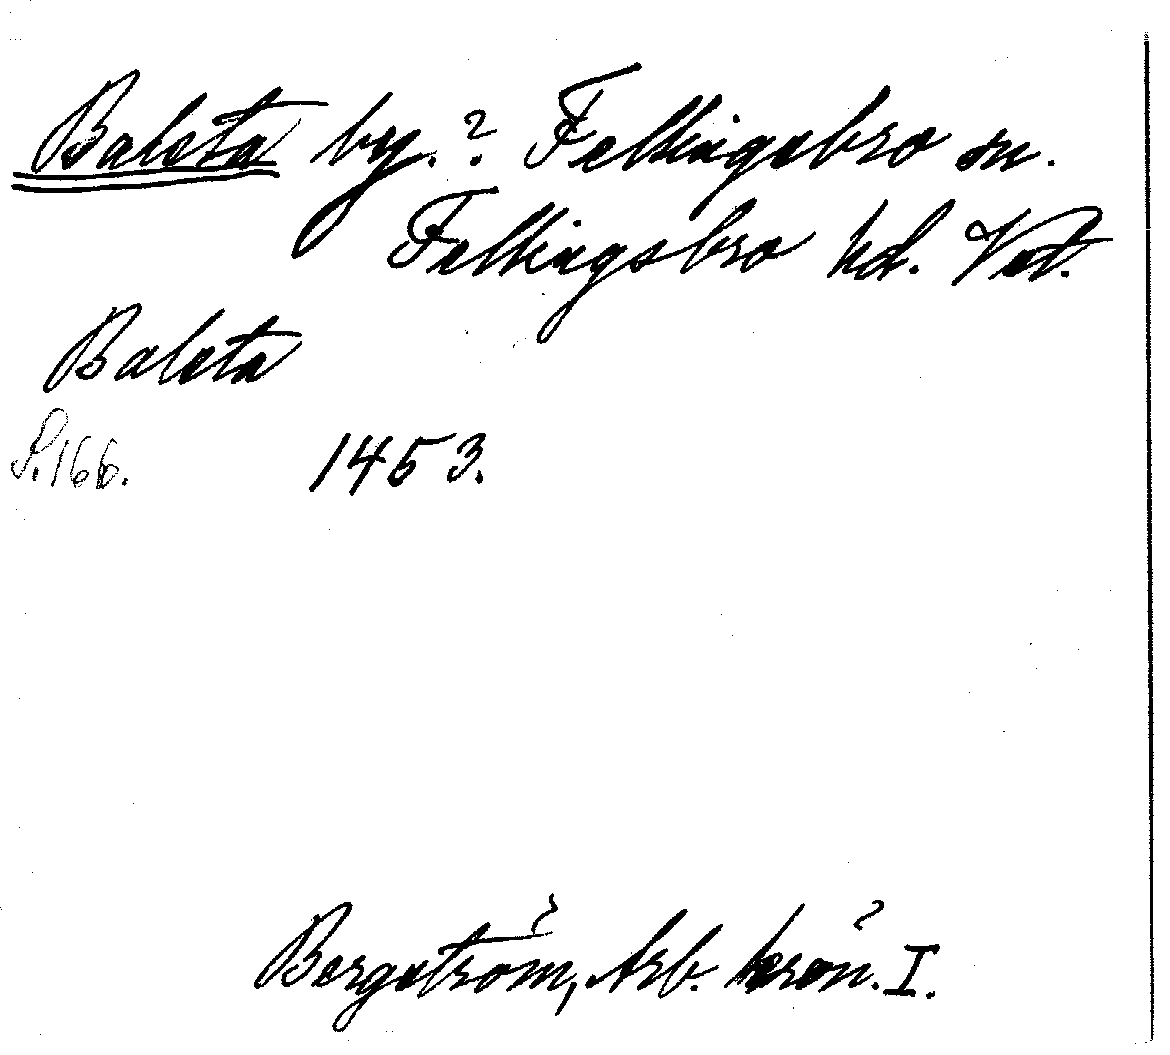 Balsta by.? Fellingsbro sn.
Fellingsbro hd. Vst.
Balsta
S. 166. 1453.
Bergström, Arb. krön. I.